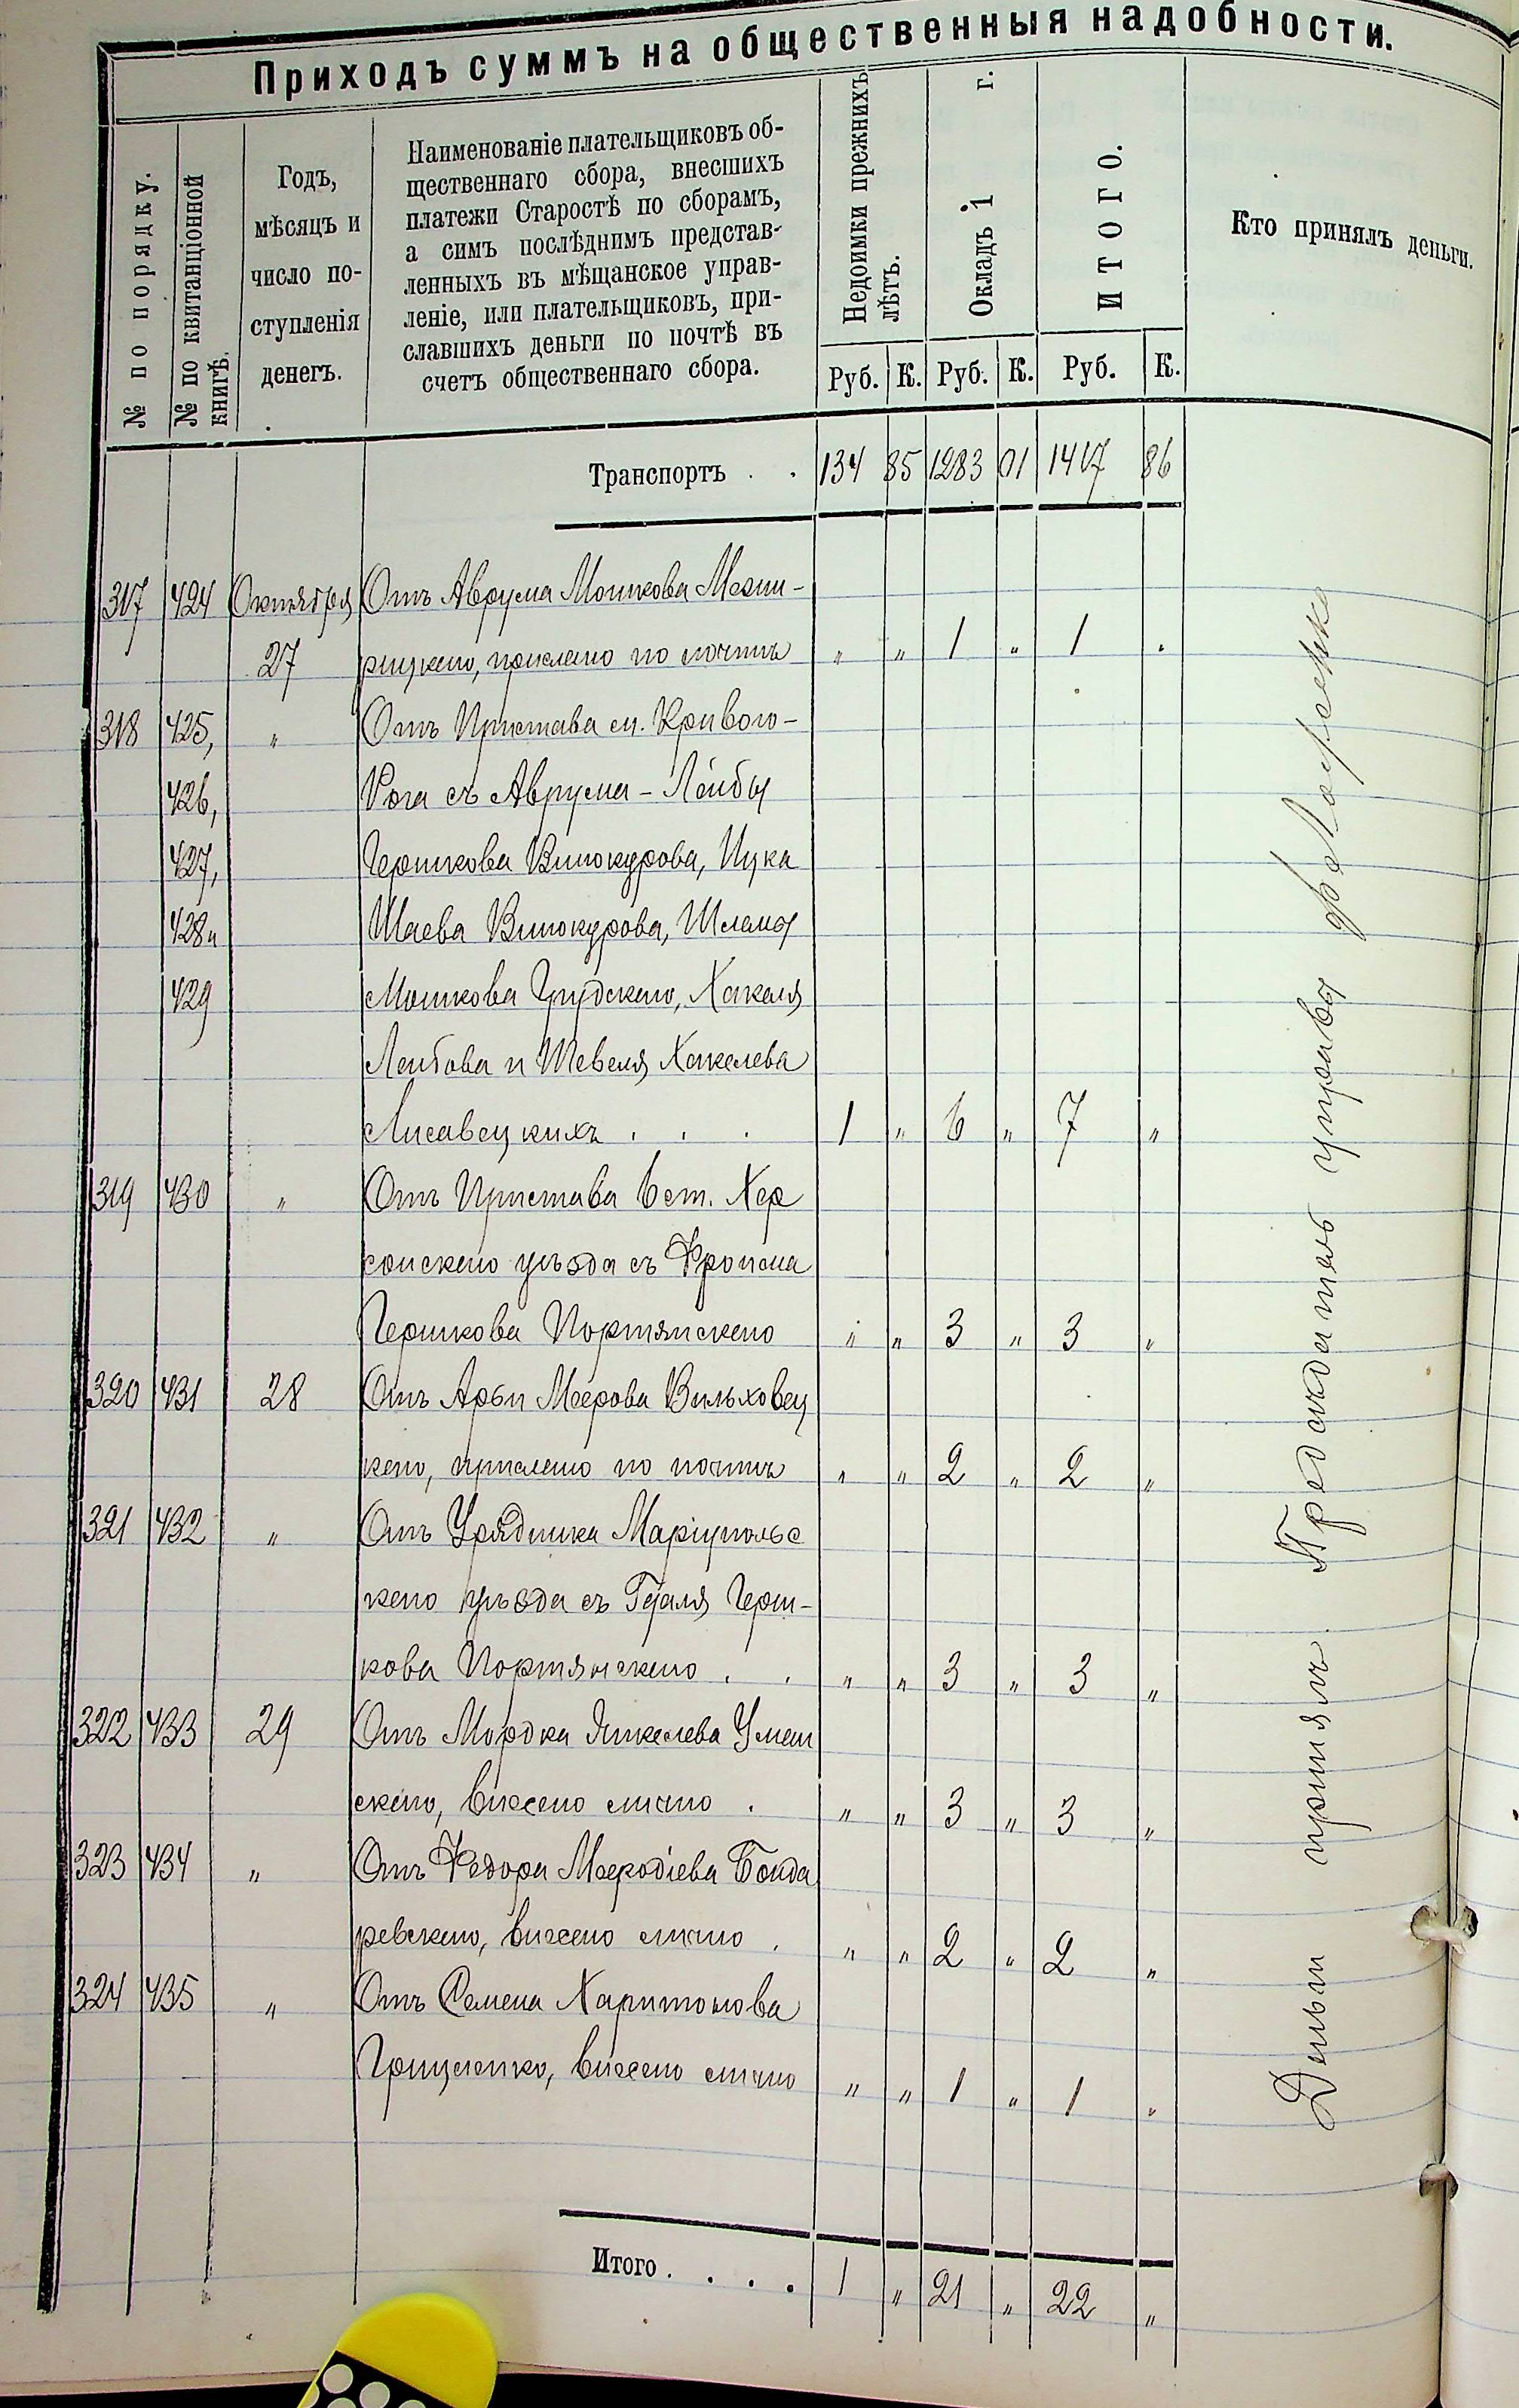 Приходъ суммъ на общественныя надобности.
№ по порядку.
№ по квитанціонной
книгѣ.
Годъ,
мѣсяцъ и
число по-
ступленія
денегъ.
Наименованіе плательщиковъ об-
щественнаго сбора, внесшихъ
платежи Старостѣ по сборамъ,
а симъ послѣднимъ представ-
ленныхъ въ мѣщанское управ-
леніе, или плательщиковъ, при-
славшихъ деньги по почтѣ въ
счетъ общественнаго сбора.
Недоимки прежнихъ
лѣтъ.
Окладъ 1 г.
ИТОГО.
Кто принялъ деньги.
Руб. К. Руб. К. Руб. К.
Транспортъ . . 134 85 1283 01 1417 86
317 424 Октября Отъ Аврума Мошкова Межи-
27 рицкаго, прислано по почтѣ " " 1 " 1 "
318 425, " Отъ Пристава м. Кривого-
426, Рога съ Аврума-Лейбы
427, Гершкова Винокурова, Ицка
428 и Шаева Винокурова, Шлемы
429 Мошкова Хакеля
Лейбова и Шевеля Хакелева
Лисавецкихъ . . . 1 " 6 " 7 "
319 430 " Отъ Пристава 6 ст. Хер
сонскаго уѣзда съ Фроима
Гершкова Портянскаго " " 3 " 3 "
320 431 28 Отъ Арьи Меерова Вильховец
каго, прислано по почтѣ " " 2 " 2 "
321 432 " Отъ Урядника Маріупольс
каго уѣзда съ Гдаля Герш-
кова Портянскаго . . " " 3 " 3 "
322 433 29 Отъ Мордка Янкелева Уман
скаго, внесено лично . " " 3 " 3 "
323 434 " Отъ Федора Меѳодіева Бонда
ревскаго, внесено лично . " " 2 " 2 "
324 435 " Отъ Семена Харитонова
Грищенко, внесено лично " " 1 " 1 "
Итого . . . . 1 " 21 " 22 "
Деньги принялъ Предсѣдатель управы